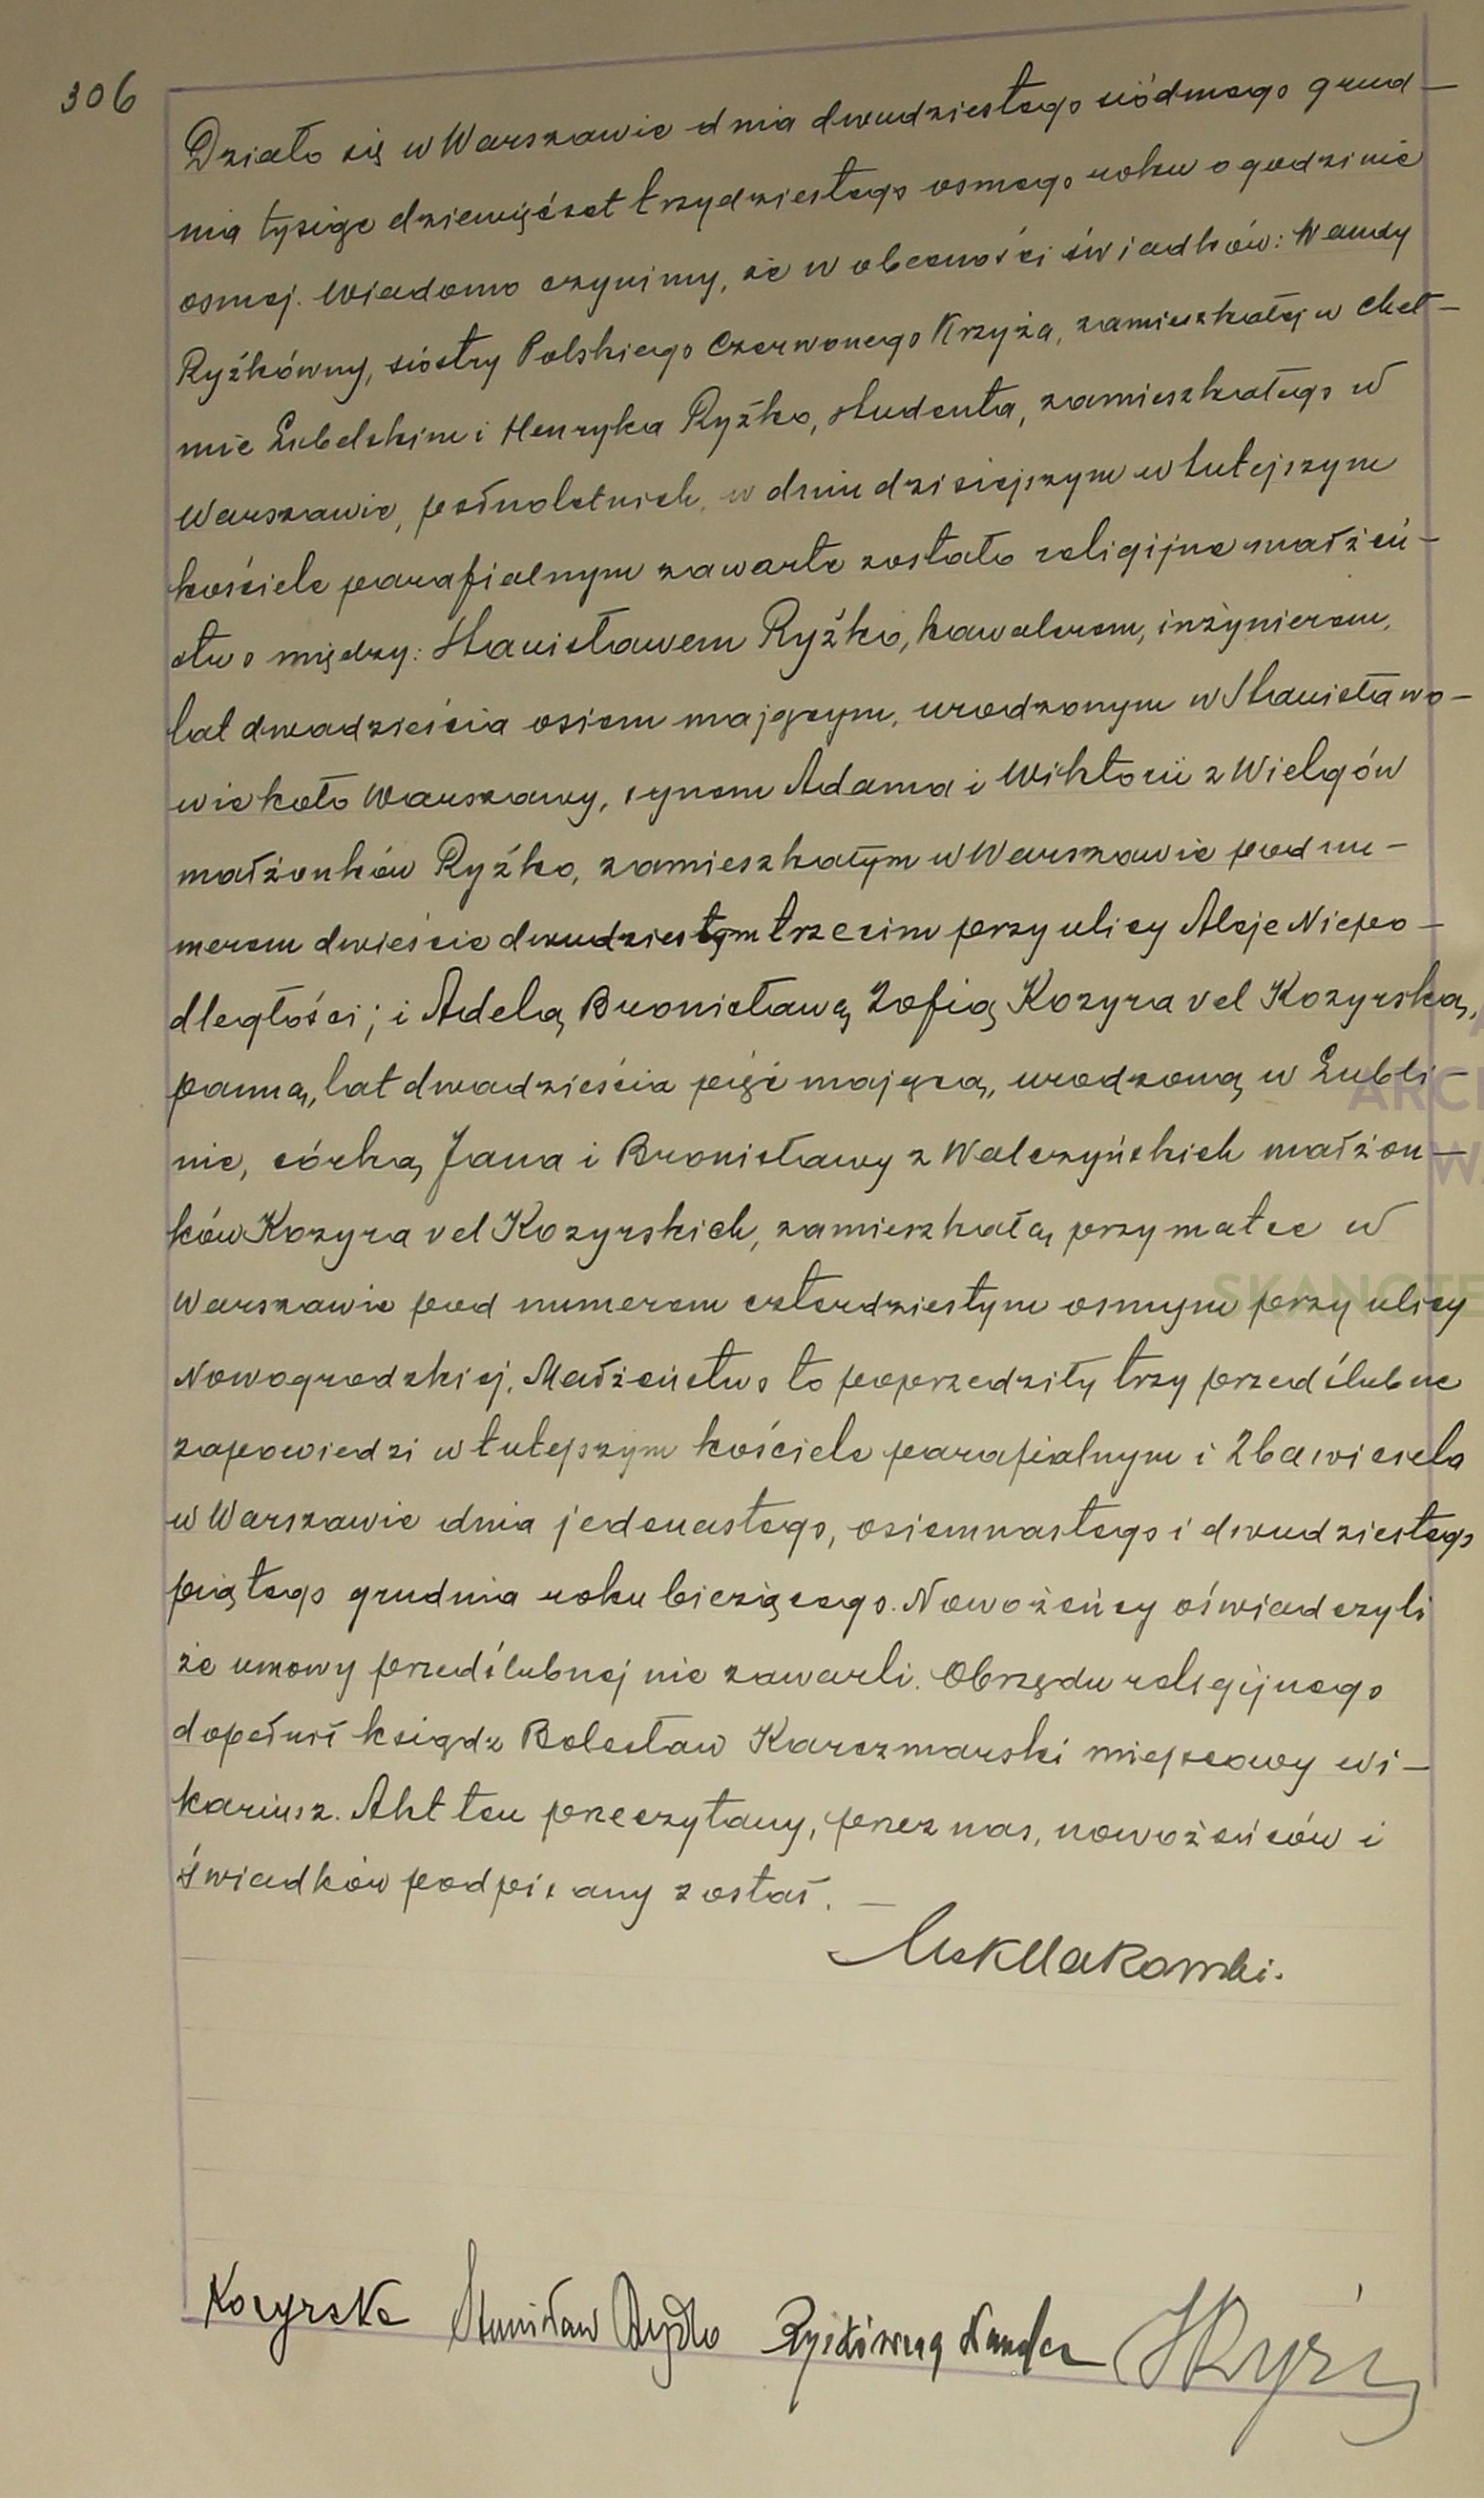 306
Działo się w Warszawie dnia dwudziestego siódmego grud-
nia tysiąc dziewięćset trzydziestego osmego roku o godzinie
osmej. Wiadomo czynimy, że w obecności świadków: Wandy
Ryźkówny, siostry Polskiego Czerwonego Krzyża, zamieszkałej w Cheł-
mie Lubelskim i Henryka Ryźko, studenta, zamieszkałego w
Warszawie, pełnoletnich, w dniu dzisiejszym w tutejszym
kościele parafialnym zawarte zostało religijne małżeń-
stwo między: Stanisławem Ryźko, kawalerem, inżynierem,
lat dwadzieścia osiem mającym, urodzonym w Stanisławo-
wie koło Warszawy, synem Adama i Wiktorii z Wielgów
małżonków Ryźko, zamieszkałym w Warszawie pod nu-
merem dwieście dwudziestym trzecim przy ulicy Aleje Niepo-
dległości; i Adelą Bronisławą Zofią Kozyra vel Kozyrską,
panną, lat dwadzieścia pięć mającą, urodzoną w Lubli-
nie, córką Jana i Bronisławy z Walczyńskich małżon-
ków Kozyra vel Kozyrskich, zamieszkałą przy matce w
Warszawie pod numerem czterdziestym osmym przy ulicy
Nowogrodzkiej. Małżeństwo to poprzedziły trzy przedślubne
zapowiedzi w tutejszym kościele parafialnym i Zbawiciela
w Warszawie dnia jedenastego, osiemnastego i dwudziestego
piątego grudnia roku bieżącego. Nowożeńcy oświadczyli
że umowy przedślubnej nie zawarli. Obrzędu religijnego
dopełnił ksiądz Bolesław Karczmarski miejscowy wi-
kariusz. Akt ten przeczytany, przez nas, nowożeńców i
świadków podpisany został. —
Kozyrska Stanisław Ryźko Ryźkówna Wanda HRyź
ARCH
WA
SKANOTE